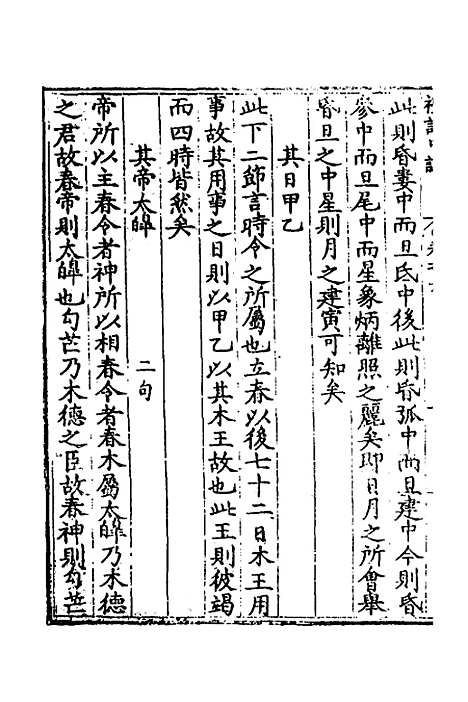 此則昏婁中而旦氐中後此則昏弧中而旦建中今則昏
參中而旦尾中而星象炳離照之麗矣即日月之所會舉
昏旦之中星則月之建寅可知矣
其日甲乙
此下二節言時令之所屬也立春以後七十二日木王用
事故其用事之日則以甲乙以其木王故也此王則彼竭
而四時皆然矣
其帝太皥 二句
帝所以主春令者神所以相春令者春木屬太皥乃木德
之君故春帝則太皥也勾芒乃木德之臣故春神則勾芒